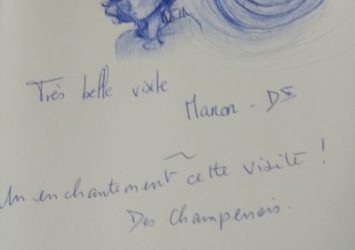 Très belle visite
Manon - DS
Un enchantement cette visite !
Des Champenois.